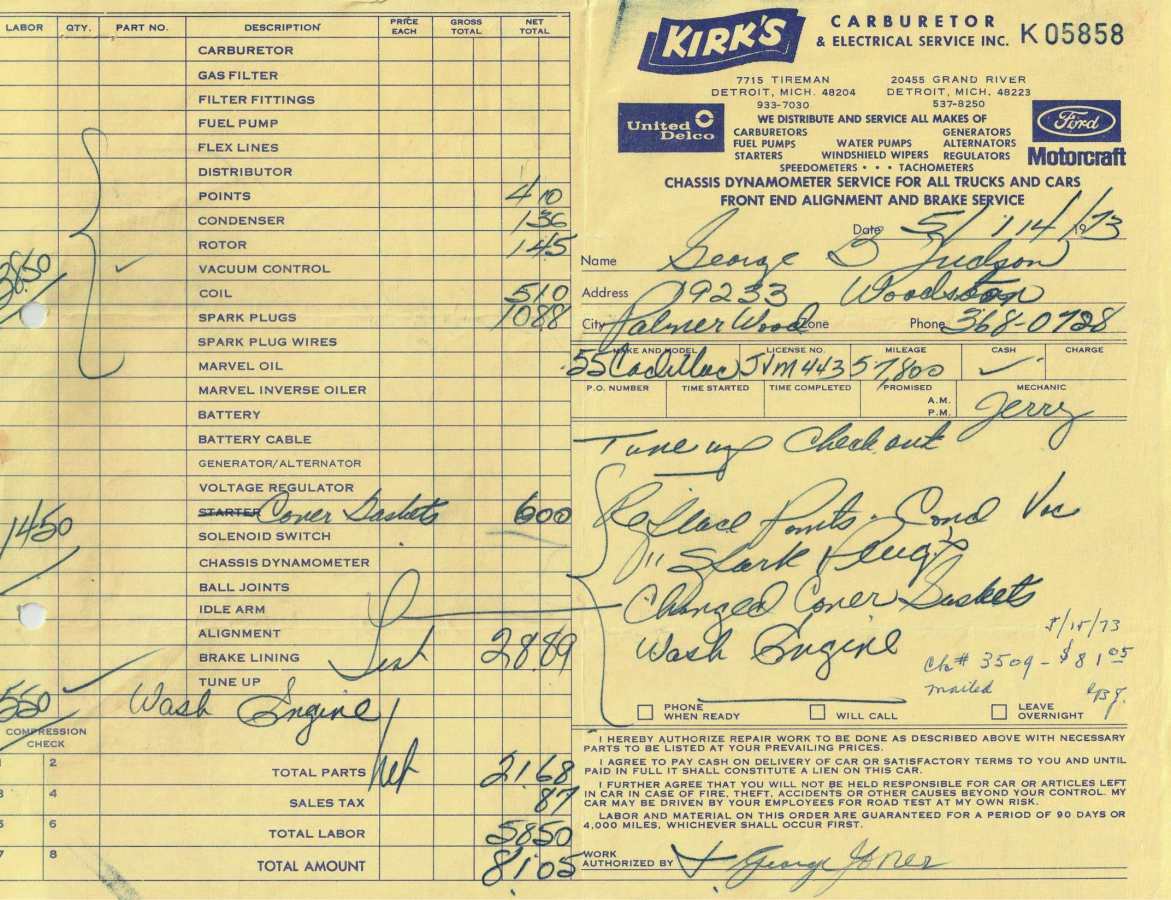 LABOR QTY. PART NO. DESCRIPTION PRICE EACH GROSS TOTAL NET TOTAL
CARBURETOR
GAS FILTER
FILTER FITTINGS
FUEL PUMP
FLEX LINES
DISTRIBUTOR
POINTS 4 10
CONDENSER 1 36
ROTOR 1 45
3850 ✓ VACUUM CONTROL
COIL 5 10
SPARK PLUGS 10 88
SPARK PLUG WIRES
MARVEL OIL
MARVEL INVERSE OILER
BATTERY
BATTERY CABLE
GENERATOR/ALTERNATOR
VOLTAGE REGULATOR
1450 STARTER Cover Gaskets 6 00
SOLENOID SWITCH
CHASSIS DYNAMOMETER
BALL JOINTS
IDLE ARM
ALIGNMENT
BRAKE LINING List 28.89
TUNE UP
550 Wash Engine
COMPRESSION CHECK
1 2 TOTAL PARTS Net 21.68
3 4 SALES TAX 87
5 6 TOTAL LABOR 58 50
7 8 TOTAL AMOUNT 81.05
KIRK'S CARBURETOR
& ELECTRICAL SERVICE INC. K 05858
7715 TIREMAN 20455 GRAND RIVER
DETROIT, MICH. 48204 DETROIT, MICH. 48223
933-7030 537-8250
United Delco
WE DISTRIBUTE AND SERVICE ALL MAKES OF
CARBURETORS GENERATORS
FUEL PUMPS WATER PUMPS ALTERNATORS
STARTERS WINDSHIELD WIPERS REGULATORS
SPEEDOMETERS • • • TACHOMETERS
Ford
Motorcraft
CHASSIS DYNAMOMETER SERVICE FOR ALL TRUCKS AND CARS
FRONT END ALIGNMENT AND BRAKE SERVICE
Date 5/14/1973
Name George B Judson
Address 19233 Woodston
City Palmer Wood Zone Phone 368-0728
MAKE AND MODEL LICENSE NO. MILEAGE CASH CHARGE
55 Cadillac JVM 443 57,800 ✓
P.O. NUMBER TIME STARTED TIME COMPLETED PROMISED MECHANIC
A.M.
P.M. Jerry
Tune up Check out
Replace Points - Cond Vac
" Spark Plugs
Changed Cover Gaskets
Wash Engine
5/15/73
Ck# 3509 - $81.05
mailed
PHONE WHEN READY WILL CALL LEAVE OVERNIGHT
I HEREBY AUTHORIZE REPAIR WORK TO BE DONE AS DESCRIBED ABOVE WITH NECESSARY
PARTS TO BE LISTED AT YOUR PREVAILING PRICES.
I AGREE TO PAY CASH ON DELIVERY OF CAR OR SATISFACTORY TERMS TO YOU AND UNTIL
PAID IN FULL IT SHALL CONSTITUTE A LIEN ON THIS CAR.
I FURTHER AGREE THAT YOU WILL NOT BE HELD RESPONSIBLE FOR CAR OR ARTICLES LEFT
IN CAR IN CASE OF FIRE, THEFT, ACCIDENTS OR OTHER CAUSES BEYOND YOUR CONTROL. MY
CAR MAY BE DRIVEN BY YOUR EMPLOYEES FOR ROAD TEST AT MY OWN RISK.
LABOR AND MATERIAL ON THIS ORDER ARE GUARANTEED FOR A PERIOD OF 90 DAYS OR
4,000 MILES, WHICHEVER SHALL OCCUR FIRST.
WORK AUTHORIZED BY X George Jones